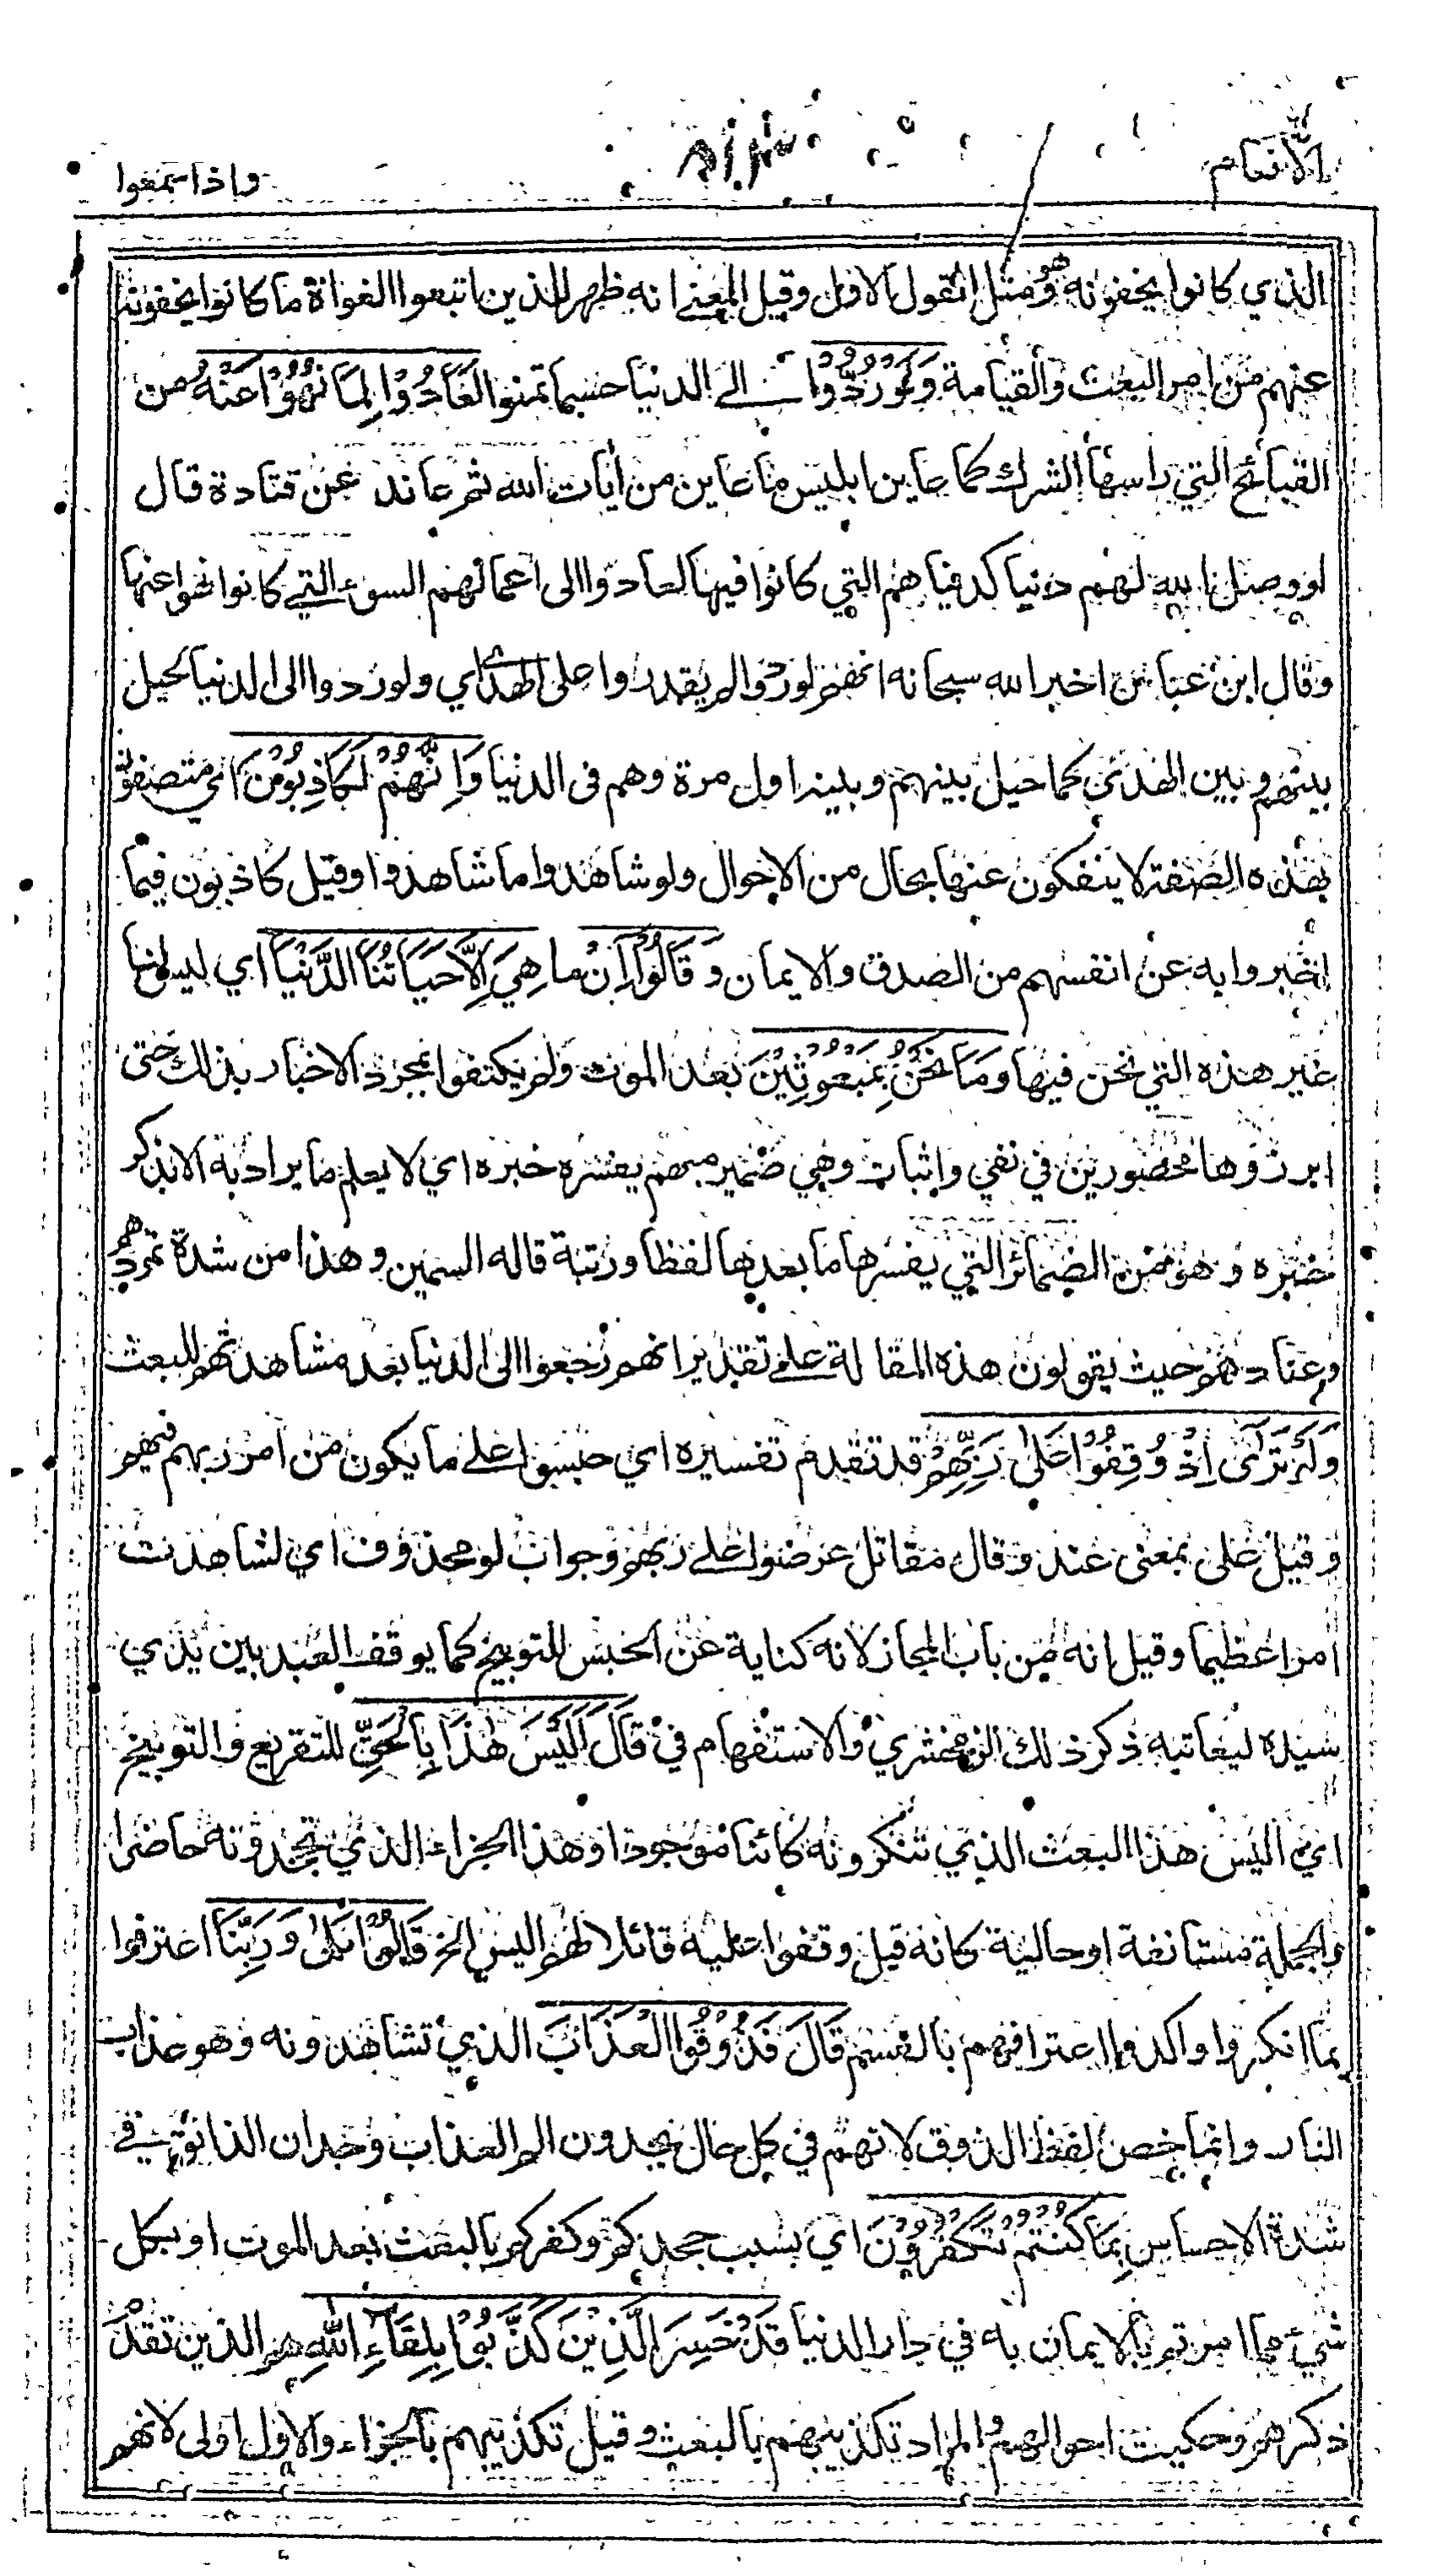 الانعام
واذا سمعوا
الذي كانوا يخفونه وهو مثل القول الاول وقيل المعنى انه ظهر للذين اتبعوا الغواة ما كانوا يخفون
عنهم من امر البعث والقيامة وَلَوْ رُدُّوْا الى الدنيا حسبما تمنوا لَعَادُوْا لِمَا نُهُوْا عَنْهُ من
القبائح التي راسها الشرك كما عاين ابليس ما عاين من أيات الله ثم عاند عن قتادة قال
لو وصل الله لهم دنيا كدنياهم التي كانوا فيها لعادوا الى اعمالهم السوء التي كانوا نهوا عنها
وقال ابن عباس اخبر الله سبحانه انهم لو ردوا لم يقدروا على الهدى اي ولو ردوا الى الدنيا لحيل
بينهم وبين الهدى كما حيل بينهم وبينه اول مرة وهم فى الدنيا وَاِنَّهُمْ لَكَاذِبُوْنَ اي متصفون
بهذه الصفة لا ينفكون عنها بحال من الاحوال ولو شاهدوا ما شاهدوا وقيل كاذبون فيما
اخبروا به عن انفسهم من الصدق والايمان وَقَالُوْا اِنْ ما هِيَ اِلَّا حَيَاتُنَا الدُّنْيَا اي ليس لنا
غير هذه التي نحن فيها وَمَا نَحْنُ بِمَبْعُوْثِيْنَ بعد الموت ولم يكتفوا بمجرد الاخبار بذلك حتى
ابرزوها محصورين في نفي واثبات وهي ضمير مبهم يفسره خبره اي لا يعلم ما يراد به الا بذكر
خبره وهو من الضمائر التي يفسرها ما بعدها لفظا ورتبة قاله السمين وهذا من شدة تمردهم
وعنادهم حيث يقولون هذه المقالة على تقدير انهم رجعوا الى الدنيا بعد مشاهدتهم للبعث
وَلَوْ تَرَىٰ اِذْ وُقِفُوْا عَلٰى رَبِّهِمْ قد تقدم تفسيره اي حبسوا على ما يكون من امر ربهم فيهم
وقيل على بمعنى عند وقال مقاتل عرضوا على ربهم وجواب لو محذوف اي لشاهدت
امرا عظيما وقيل انه من باب المجاز لانه كناية عن الحبس للتوبيخ كما يوقف العبد بين يدي
سيده ليعاتبه ذكر ذلك الزمخشري والاستفهام في قَالَ اَلَيْسَ هٰذَا بِالْحَقِّ للتقريع والتوبيخ
اي اليس هذا البعث الذي تنكرونه كائنا موجودا وهذا الجزاء الذي تجحدونه حاضرا
والجملة مستانفة او حالية كانه قيل وقفوا عليه قائلا لهم اليس الخ قَالُوْا بَلٰى وَرَبِّنَا اعترفوا
بما انكروا واكدوا اعترافهم بالقسم قَالَ فَذُوْقُوا الْعَذَابَ الذي تشاهدونه وهو عذاب
النار وانما خص لفظ الذوق لانهم في كل حال يجدون الم العذاب وجدان الذائق في
شدة الاحساس بِمَا كُنْتُمْ تَكْفُرُوْنَ اي بسبب جحدكم وكفركم بالبعث بعد الموت او بكل
شيء مما امرتم بالايمان به في دار الدنيا قَدْ خَسِرَ الَّذِيْنَ كَذَّبُوْا بِلِقَاءِ اللّٰهِ هم الذين تقدم
ذكرهم وحكيت احوالهم والمراد تكذيبهم بالبعث وقيل تكذيبهم بالجزاء والاول اولى لانهم